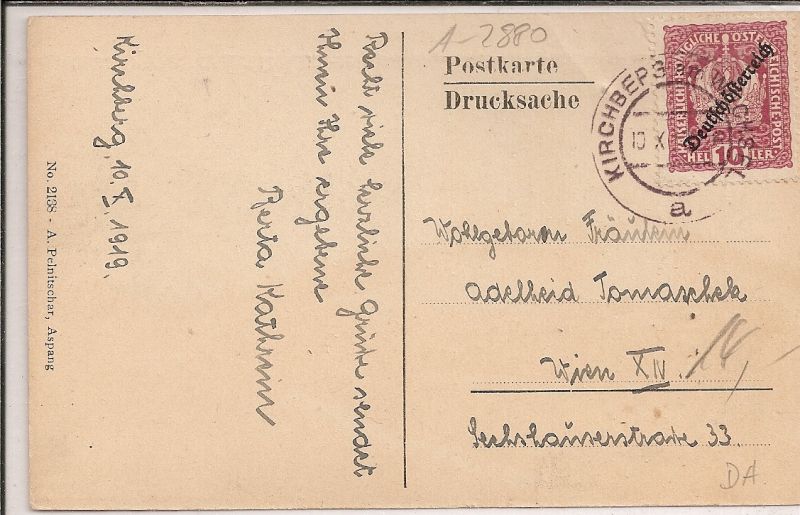 A-2880
Postkarte
Drucksache
KIRCHBERG AM WECHSEL
10 X
a
KAISERLICHE KÖNIGLICHE ÖSTERREICHISCHE POST
Deutschösterreich
HELLER
10
Kirchberg, 10.X.1919.
Recht viele herzliche Grüße sendet
Ihnen Ihre ergebene
Berta Kathrein
Wohlgeboren Fräulein
Adelheid Tomaschek
Wien XIV.
Sechshauserstraße 33.
DA
No. 2138 - A. Pelnitschar, Aspang